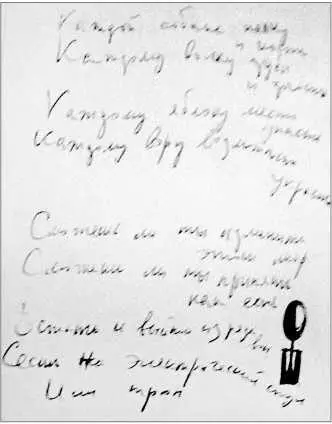 Каждой собаке палку
и кость
Каждому волку зубы
и злость
Каждому яблоку место
упасть
Каждому вору возможность
украсть
Сможешь ли ты изменить
этот мир
Сможешь ли ты принять
как есть
Встать и выйти из ряда
вон
Сесть на электрический стул
Или трон